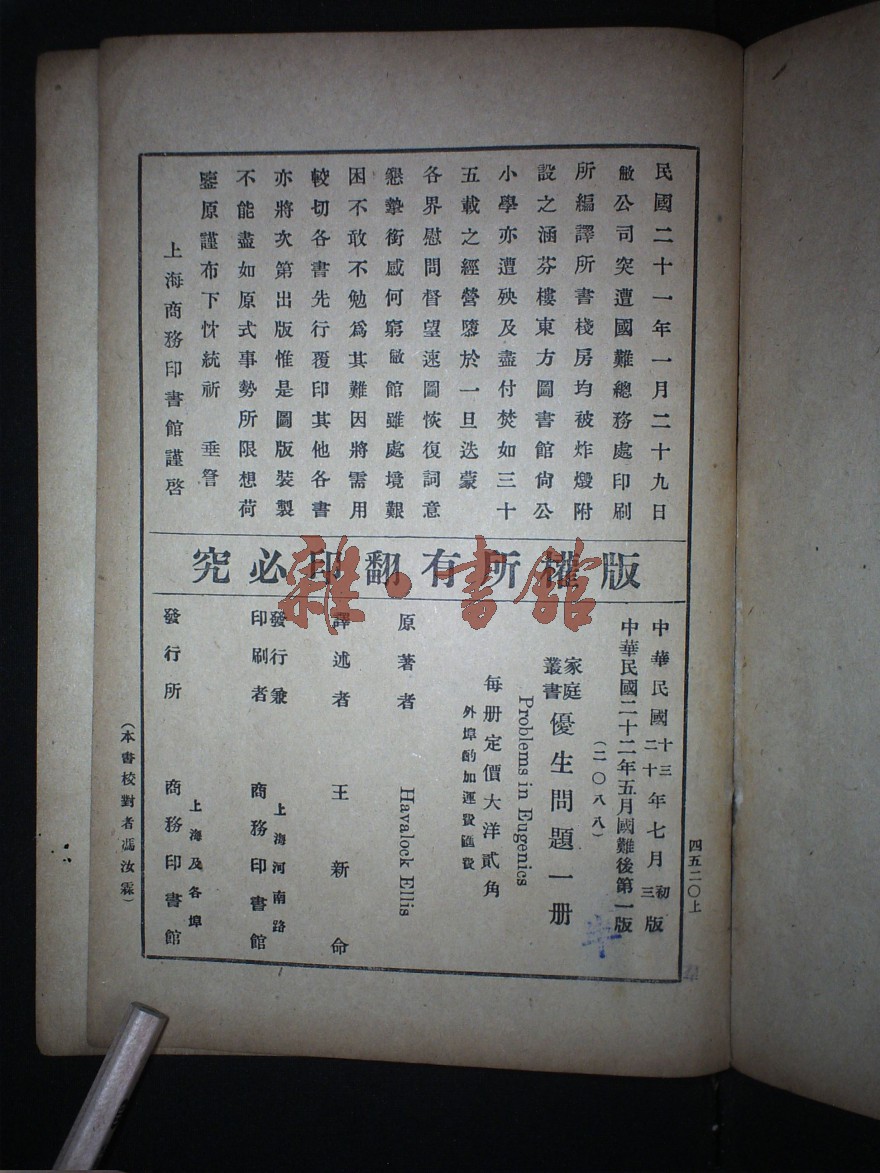 民國二十一年一月二十九日
敝公司突遭國難總務處印刷
所編譯所書棧房均被炸燬附
設之涵芬樓東方圖書館尙公
小學亦遭殃及盡付焚如三十
五載之經營隳於一旦迭蒙
各界慰問督望速圖恢復詞意
懇摯銜感何窮敝館雖處境艱
困不敢不勉爲其難因將需用
較切各書先行覆印其他各書
亦將次第出版惟是圖版裝製
不能盡如原式事勢所限想荷
鑒原謹布下忱統祈 垂詧
上海商務印書館謹啓
版權所有翻印必究
雜·書館
四五二〇上
中華民國十三年七月初版
二十 三
中華民國二十二年五月國難後第一版
(二〇八八)
家庭叢書 優生問題一册
Problems in Eugenics
每册定價大洋貳角
外埠酌加運費匯費
原著者 Havalock Ellis
譯述者 王新命
發行兼印刷者 上海河南路 商務印書館
發行所 上海及各埠 商務印書館
(本書校對者馮汝霖)